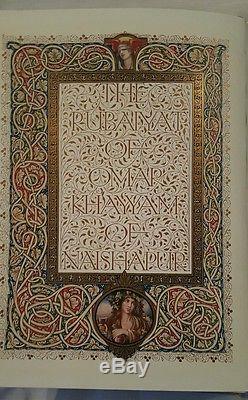 THE
RUBAIYAT
OF
OMAR
KHAYYAM
OF
NAISHAPUR